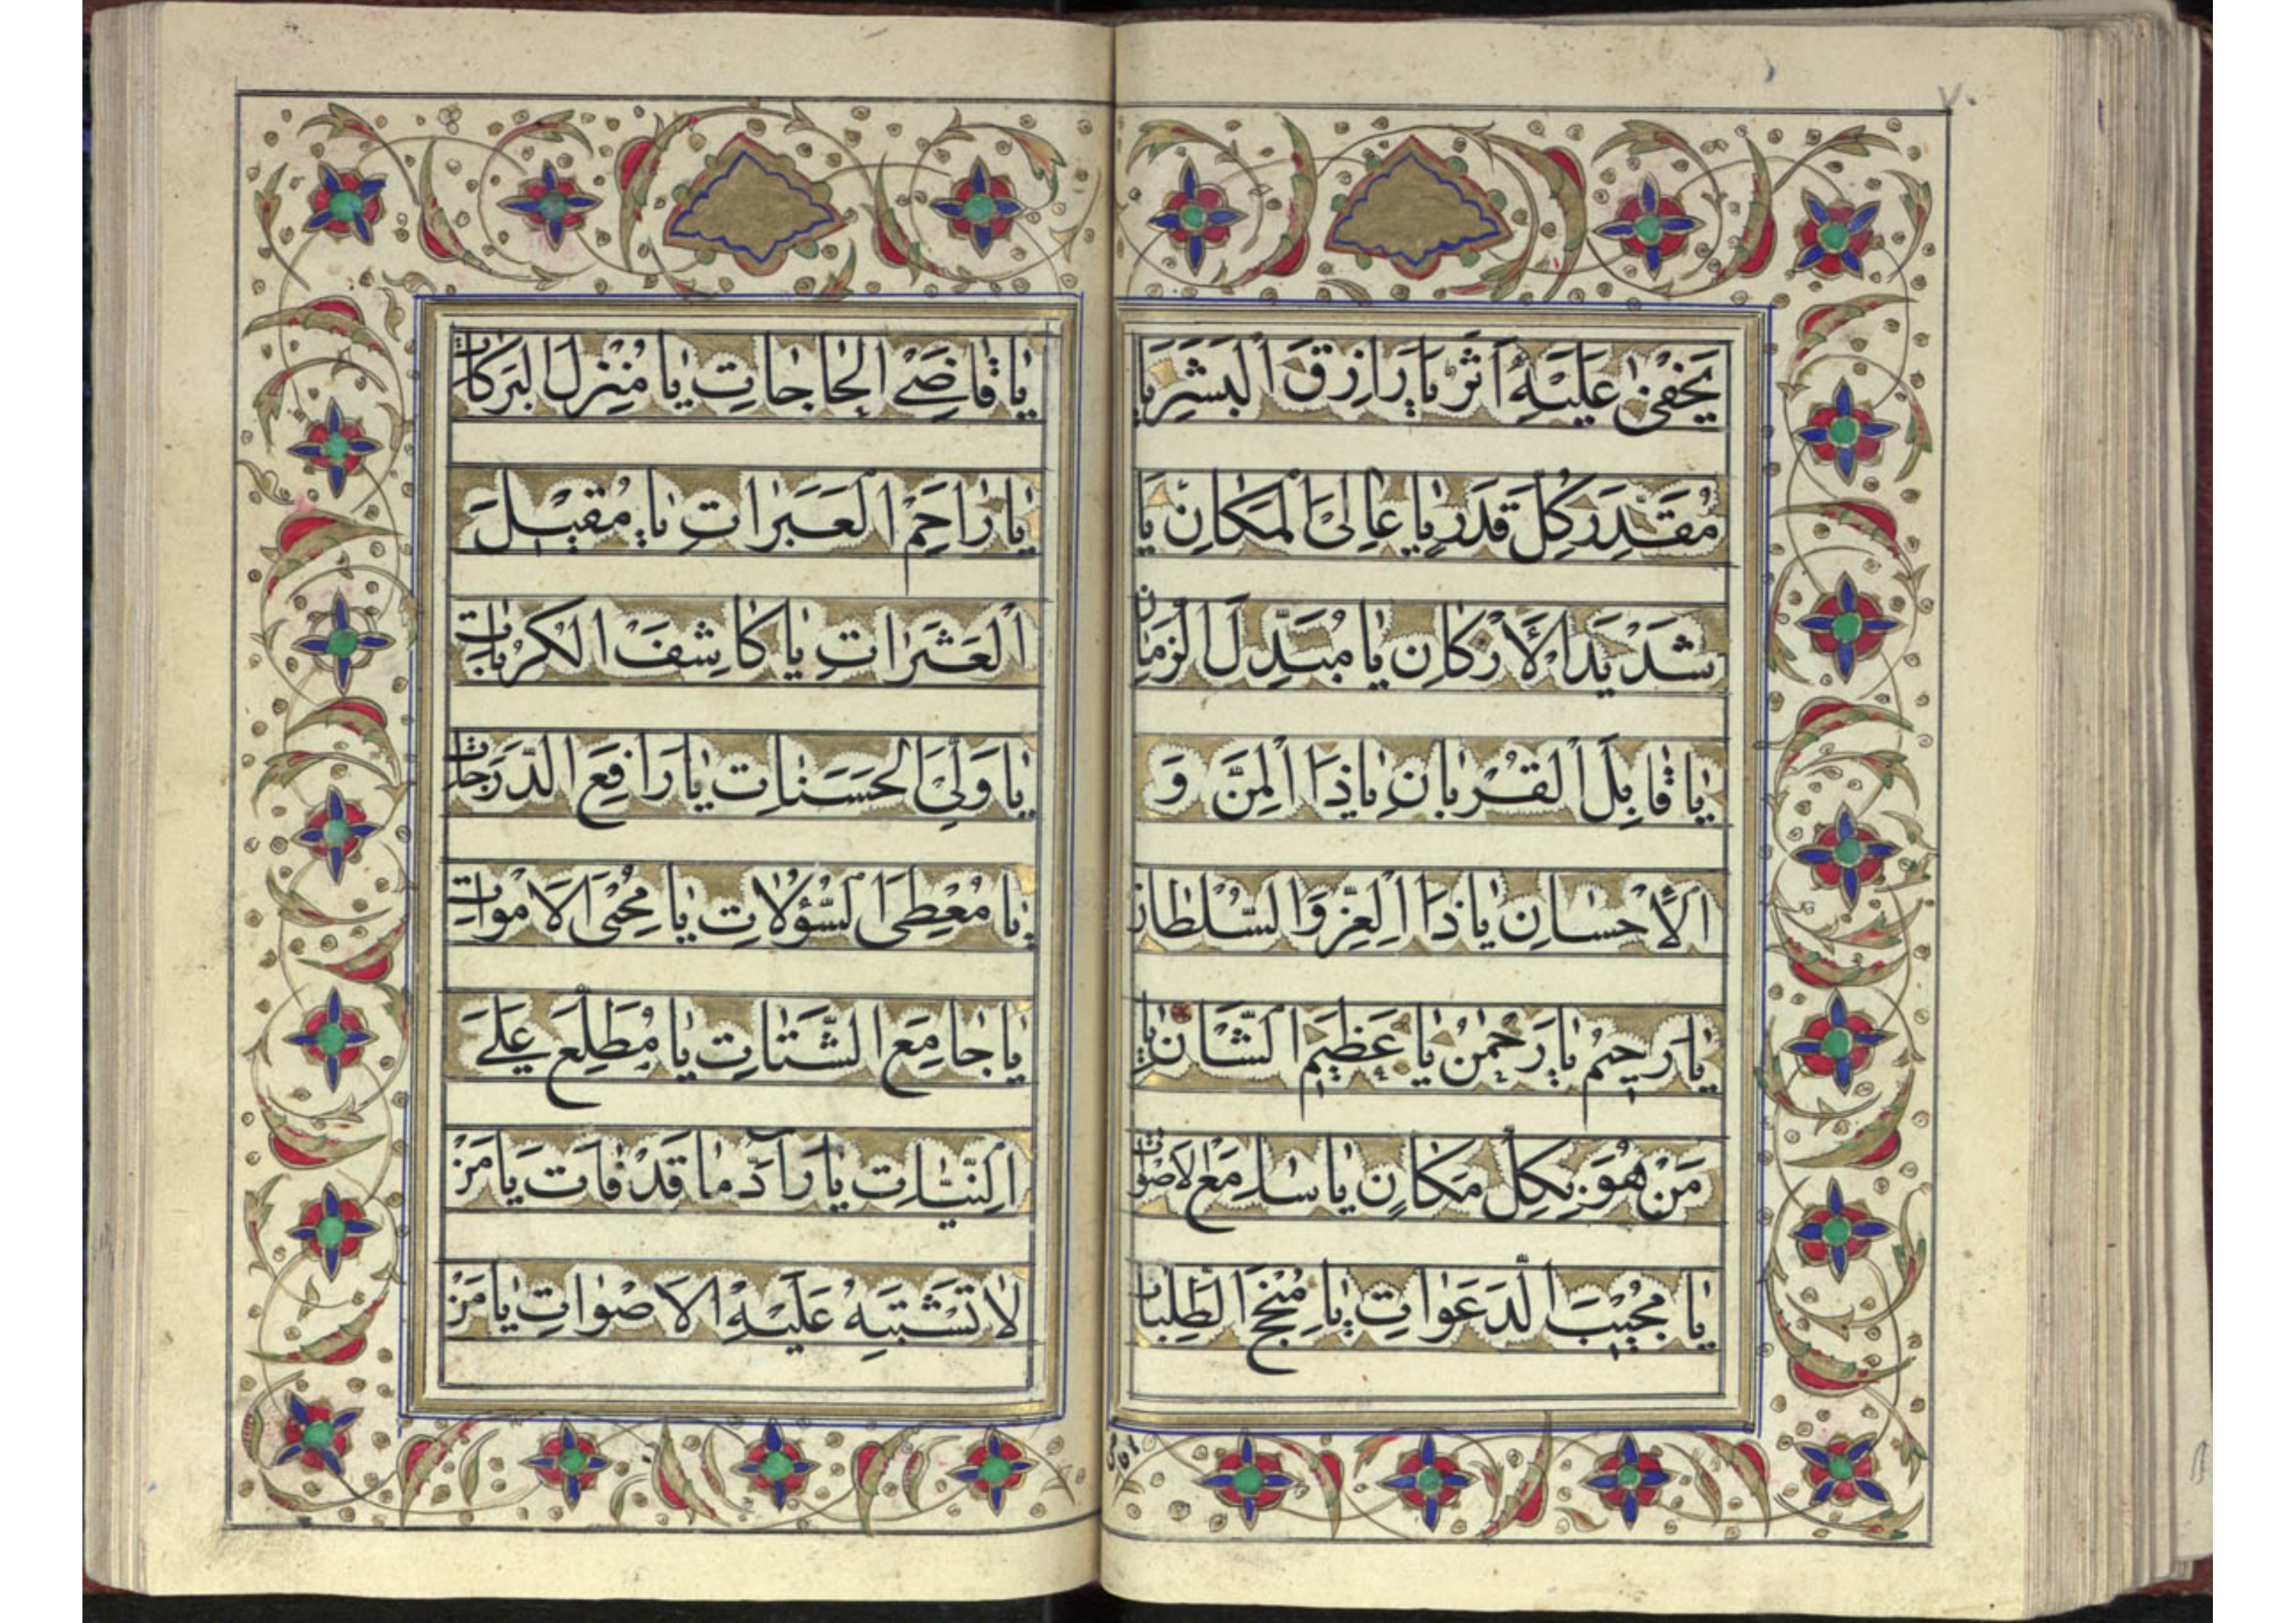 ٧٠
يَخْفىٰ عَلَيْهِ اَثَرٌ يا رازِقَ الْبَشَرِ يا
مُقَدِّرَ كُلِّ قَدَرٍ يا عالِىَ الْمَكانِ يا
شَديدَ الْأَرْكانِ يا مُبَدِّلَ الزَّمانِ
يا قابِلَ الْقُرْبانِ يا ذَا الْمَنِّ وَ
الْاِحْسانِ يا ذَا الْعِزِّ وَ السُّلْطانِ
يا رَحيمُ يا رَحْمٰنُ يا عَظيمَ الشَّانِ يا
مَنْ هُوَ بِكُلِّ مَكانٍ يا سامِعَ الاَصْواتِ
يا مُجيبَ الدَّعَواتِ يا مُنْجِحَ الطَّلِبات
يا قاضِىَ الْحاجاتِ يا مُنْزِلَ الْبَرَكاتِ
يا راحِمَ الْعَبَراتِ يا مُقيلَ
الْعَثَراتِ يا كاشِفَ الْكُرُباتِ
يا وَلِىَّ الْحَسَناتِ يا رافِعَ الدَّرَجاتِ
يا مُعْطِىَ السُّؤُلاتِ يا مُحْيِىَ الاَمْواتِ
يا جامِعَ الشَّتاتِ يا مُطَّلِعَ عَلَى
النِّيّاتِ يا رآدَّ ما قَدْ فاتَ يا مَنْ
لا تَشْتَبِهُ عَلَيْهِ الاَصْواتِ يا مَنْ